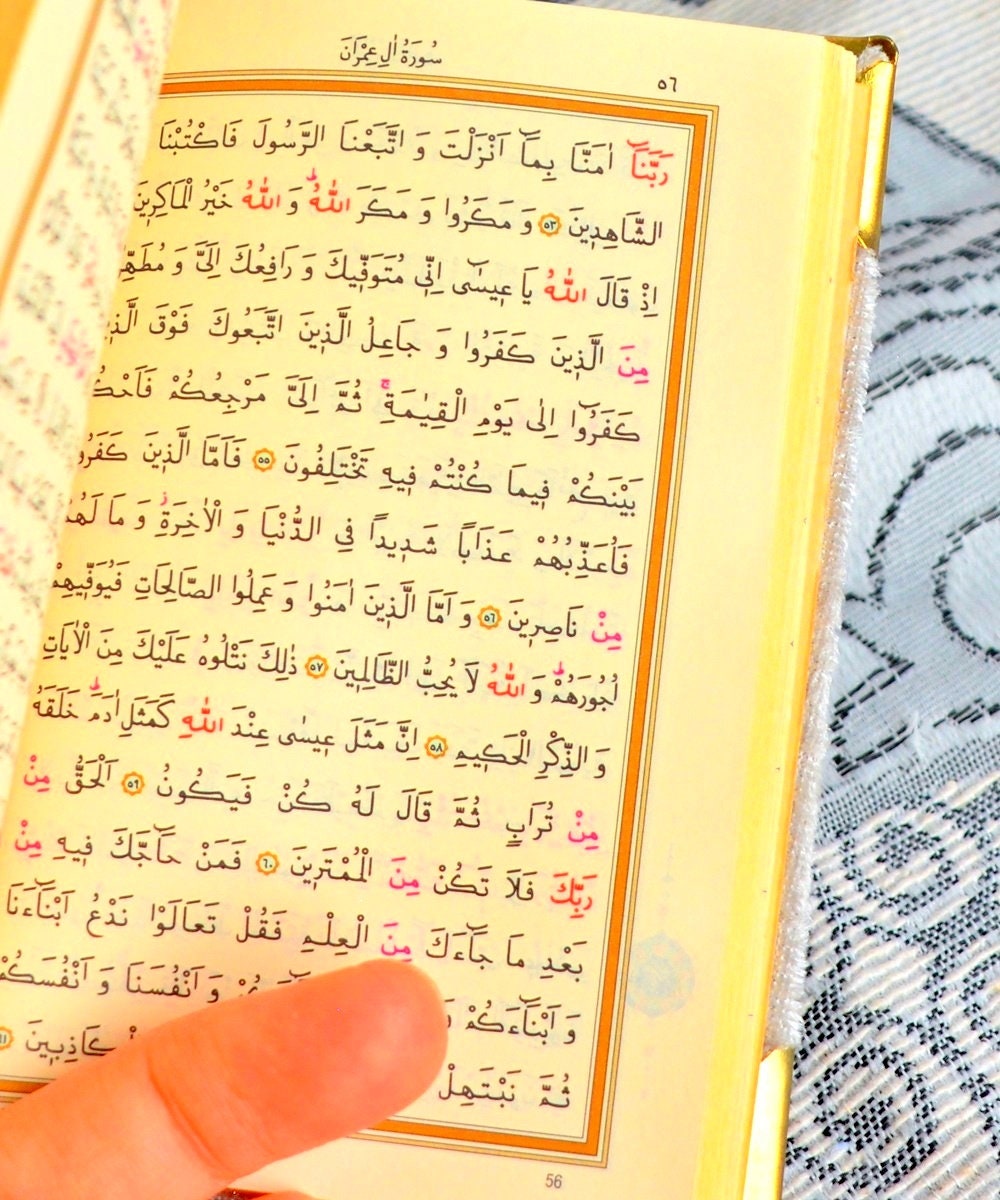 سُورَةُ اٰلِ عِمْرَانَ
٥٦
رَبَّنَٓا اٰمَنَّا بِمَٓا اَنْزَلْتَ وَ اتَّبَعْنَا الرَّسُولَ فَاكْتُبْنَا
الشَّاهِدِينَ ٥٣ وَ مَكَرُوا وَ مَكَرَ اللّٰهُؕ وَ اللّٰهُ خَيْرُ الْمَاكِرِينَ
اِذْ قَالَ اللّٰهُ يَا عِيسٰٓى اِنِّى مُتَوَفِّيكَ وَ رَافِعُكَ اِلَىَّ وَ مُطَهِّرُ
مِنَ الَّذِينَ كَفَرُوا وَ جَاعِلُ الَّذِينَ اتَّبَعُوكَ فَوْقَ الَّذِي
كَفَرُٓوا اِلٰى يَوْمِ الْقِيٰمَةِۚ ثُمَّ اِلَىَّ مَرْجِعُكُمْ فَاَحْكُ
بَيْنَكُمْ فِيمَا كُنْتُمْ فِيهِ تَخْتَلِفُونَ ٥٥ فَاَمَّا الَّذِينَ كَفَرُو
فَاُعَذِّبُهُمْ عَذَابًا شَدِيدًا فِى الدُّنْيَا وَ الْاٰخِرَةِؗ وَ مَا لَهُمْ
مِنْ نَاصِرِينَ ٥٦ وَ اَمَّا الَّذِينَ اٰمَنُوا وَ عَمِلُوا الصَّالِحَاتِ فَيُوَفِّيهِمْ
اُجُورَهُمْؕ وَ اللّٰهُ لَا يُحِبُّ الظَّالِمِينَ ٥٧ ذٰلِكَ نَتْلُوهُ عَلَيْكَ مِنَ الْاٰيَاتِ
وَ الذِّكْرِ الْحَكِيمِ ٥٨ اِنَّ مَثَلَ عِيسٰى عِنْدَ اللّٰهِ كَمَثَلِ اٰدَمَؕ خَلَقَهُ
مِنْ تُرَابٍ ثُمَّ قَالَ لَهُ كُنْ فَيَكُونُ ٥٩ اَلْحَقُّ مِنْ
رَبِّكَ فَلَا تَكُنْ مِنَ الْمُمْتَرِينَ ٦٠ فَمَنْ حَٓاجَّكَ فِيهِ مِنْ
بَعْدِ مَا جَٓاءَكَ مِنَ الْعِلْمِ فَقُلْ تَعَالَوْا نَدْعُ اَبْنَٓاءَنَا
وَ اَبْنَٓاءَكُمْ وَ اَنْفُسَنَا وَ اَنْفُسَكُمْ
ثُمَّ نَبْتَهِلْ كَاذِبِينَ ٦١
56